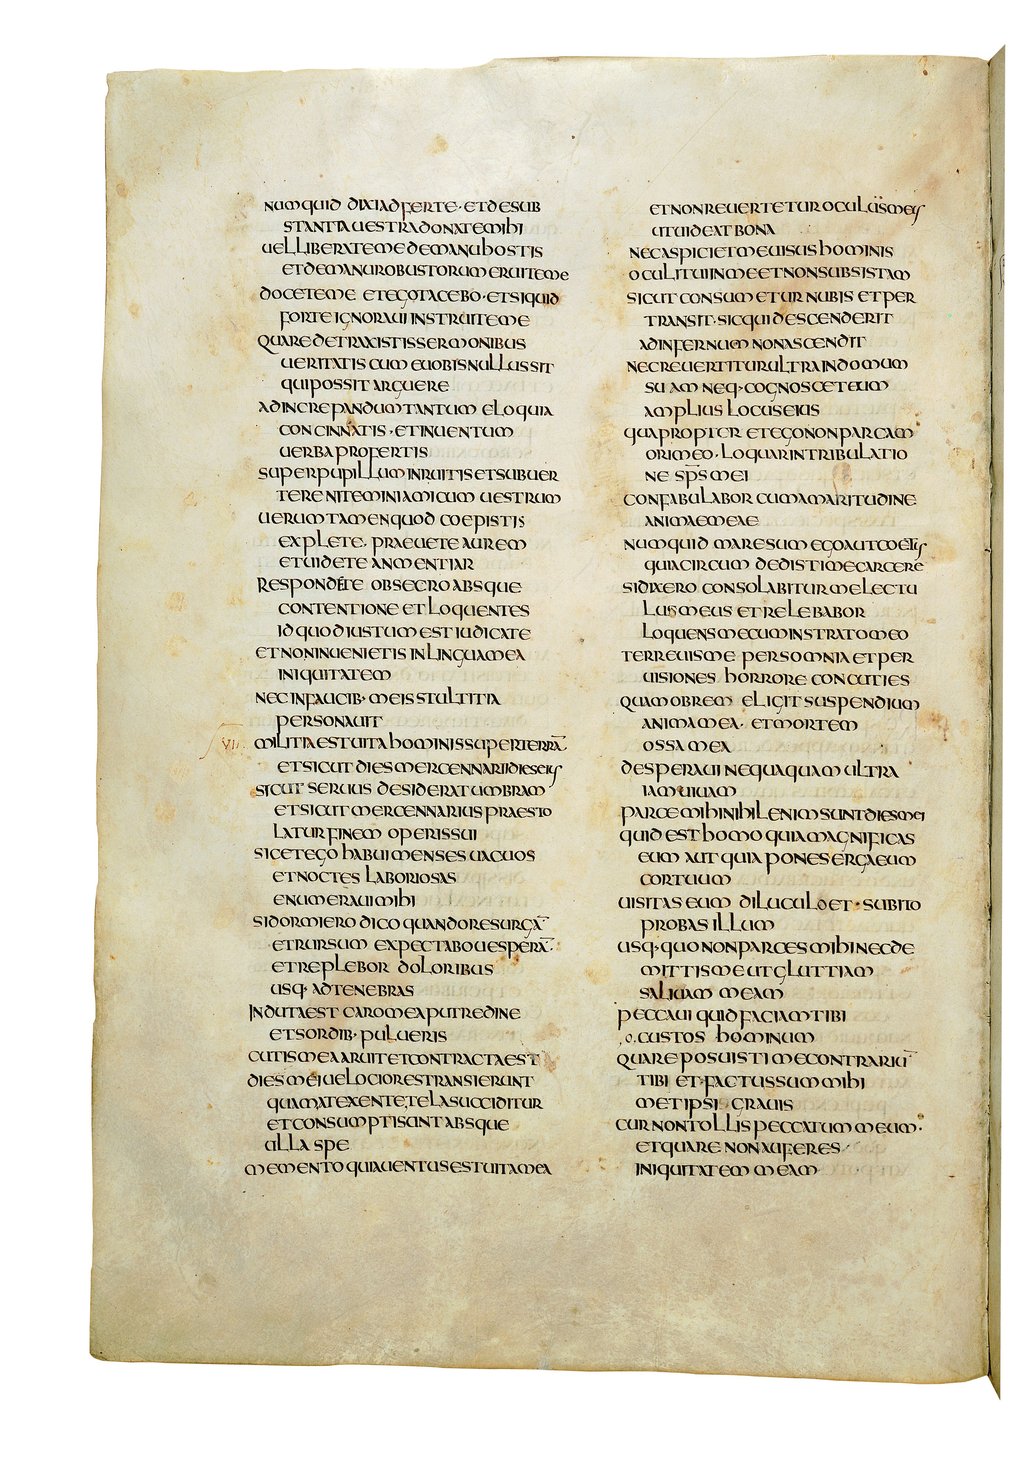 NUMQUID DIXI ADFERTE· ET DE SUB
STANTIA UESTRA DONATE MIHI
UEL LIBERATE ME DE MANU HOSTIS
ET DE MANU ROBUSTORUM ERUITE ME
DOCETE ME ET EGO TACEBO· ET SI QUID
FORTE IGNORAUI INSTRUITE ME
QUARE DETRAXISTIS SERMONIBUS
UERITATIS CUM E UOBIS NULLUS SIT
QUI POSSIT ARGUERE
AD INCREPANDUM TANTUM ELOQUIA
CONCINNATIS· ET IN UENTUM
UERBA PROFERTIS
SUPER PUPILLUM INRUITIS ET SUBUER
TERE NITEMINI AMICUM UESTRUM
UERUMTAMEN QUOD COEPISTIS
EXPLETE· PRAEUETE AUREM
ET UIDETE AN MENTIAR
RESPONDETE OBSECRO ABSQUE
CONTENTIONE ET LOQUENTES
ID QUOD IUSTUM EST IUDICATE
ET NON INUENIETIS IN LINGUA MEA
INIQUITATEM
NEC IN FAUCIB· MEIS STULTITIA
PERSONAUIT
VII· MILITIA EST UITA HOMINIS SUPER TERRĀ·
ET SICUT DIES MERCENNARII DIES EIUS
SICUT SERUUS DESIDERAT UMBRAM
ET SICUT MERCENNARIUS PRAESTO
LATUR FINEM OPERIS SUI
SIC ET EGO HABUI MENSES UACUOS
ET NOCTES LABORIOSAS
ENUMERAUI MIHI
SI DORMIERO DICO QUANDO RESURGĀ
ET RURSUM EXPECTABO UESPERĀ·
ET REPLEBOR DOLORIBUS
USQ· AD TENEBRAS
INDUTA EST CARO MEA PUTREDINE
ET SORDIB· PULUERIS
CUTIS MEA ARUIT ET CONTRACTA EST
DIES MEI UELOCIORES TRANSIERUNT
QUAM A TEXENTE TELA SUCCIDITUR
ET CONSUMPTI SUNT ABSQUE
ULLA SPE
MEMENTO QUIA UENTUS EST UITA MEA
ET NON REUERTETUR OCULUS MEUS
UT UIDEAT BONA
NEC ASPICIET ME UISUS HOMINIS
OCULI TUI IN ME ET NON SUBSISTAM
SICUT CONSUMETUR NUBIS ET PER
TRANSIT· SIC QUI DESCENDERIT
AD INFERNUM NON ASCENDIT
NEC REUERTITUR ULTRA IN DOMUM
SUAM NEQ· COGNOSCET EUM
AMPLIUS LOCUS EIUS
QUAPROPTER ET EGO NON PARCAM
ORI MEO· LOQUAR IN TRIBULATIO
NE SP̄S MEI
CONFABULABOR CUM AMARITUDINE
ANIMAE MEAE
NUMQUID MARE SUM EGO AUT COETUS
QUIA CIRCUMDEDISTI ME CARCERE
SI DIXERO CONSOLABITUR ME LECTU
LUS MEUS ET RELEBABOR
LOQUENS MECUM IN STRATO MEO
TERREUIS ME PER SOMNIA ET PER
UISIONES HORRORE CONCUTIES
QUAM OB REM ELIGIT SUSPENDIUM
ANIMA MEA· ET MORTEM
OSSA MEA
DESPERAUI NEQUAQUAM ULTRA
IAM UIUAM
PARCE MIHI NIHIL ENIM SUNT DIES MEI
QUID EST HOMO QUIA MAGNIFICAS
EUM AUT QUIA PONES ERGA EUM
COR TUUM
UISITAS EUM DILUCULO ET· SUBITO
PROBAS ILLUM
USQ· QUO NON PARCES MIHI NEC DE
MITTIS ME UT GLUTTIAM
SALIUAM MEAM
PECCAUI QUID FACIAM TIBI
·O·CUSTOS HOMINUM
QUARE POSUISTI ME CONTRARIŪ
TIBI ET FACTUS SUM MIHI
METIPSI GRAUIS
CUR NON TOLLIS PECCATUM MEUM·
ET QUARE NON AUFERES
INIQUITATEM MEAM